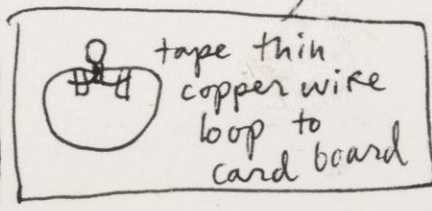 tape thin
copper wire
loop to
card board